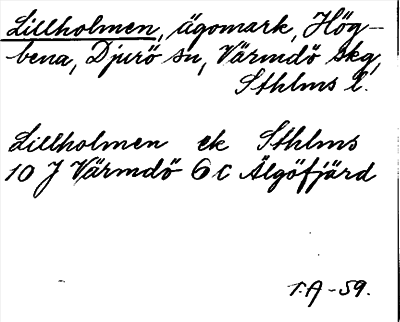 Lillholmen, ägomark, Hög-
bena, Djurö sn, Värmdö skg,
Sthlms l.
Lillholmen ek Sthlms
10 J Värmdö 6 c Älgöfjärd
T.A-59.